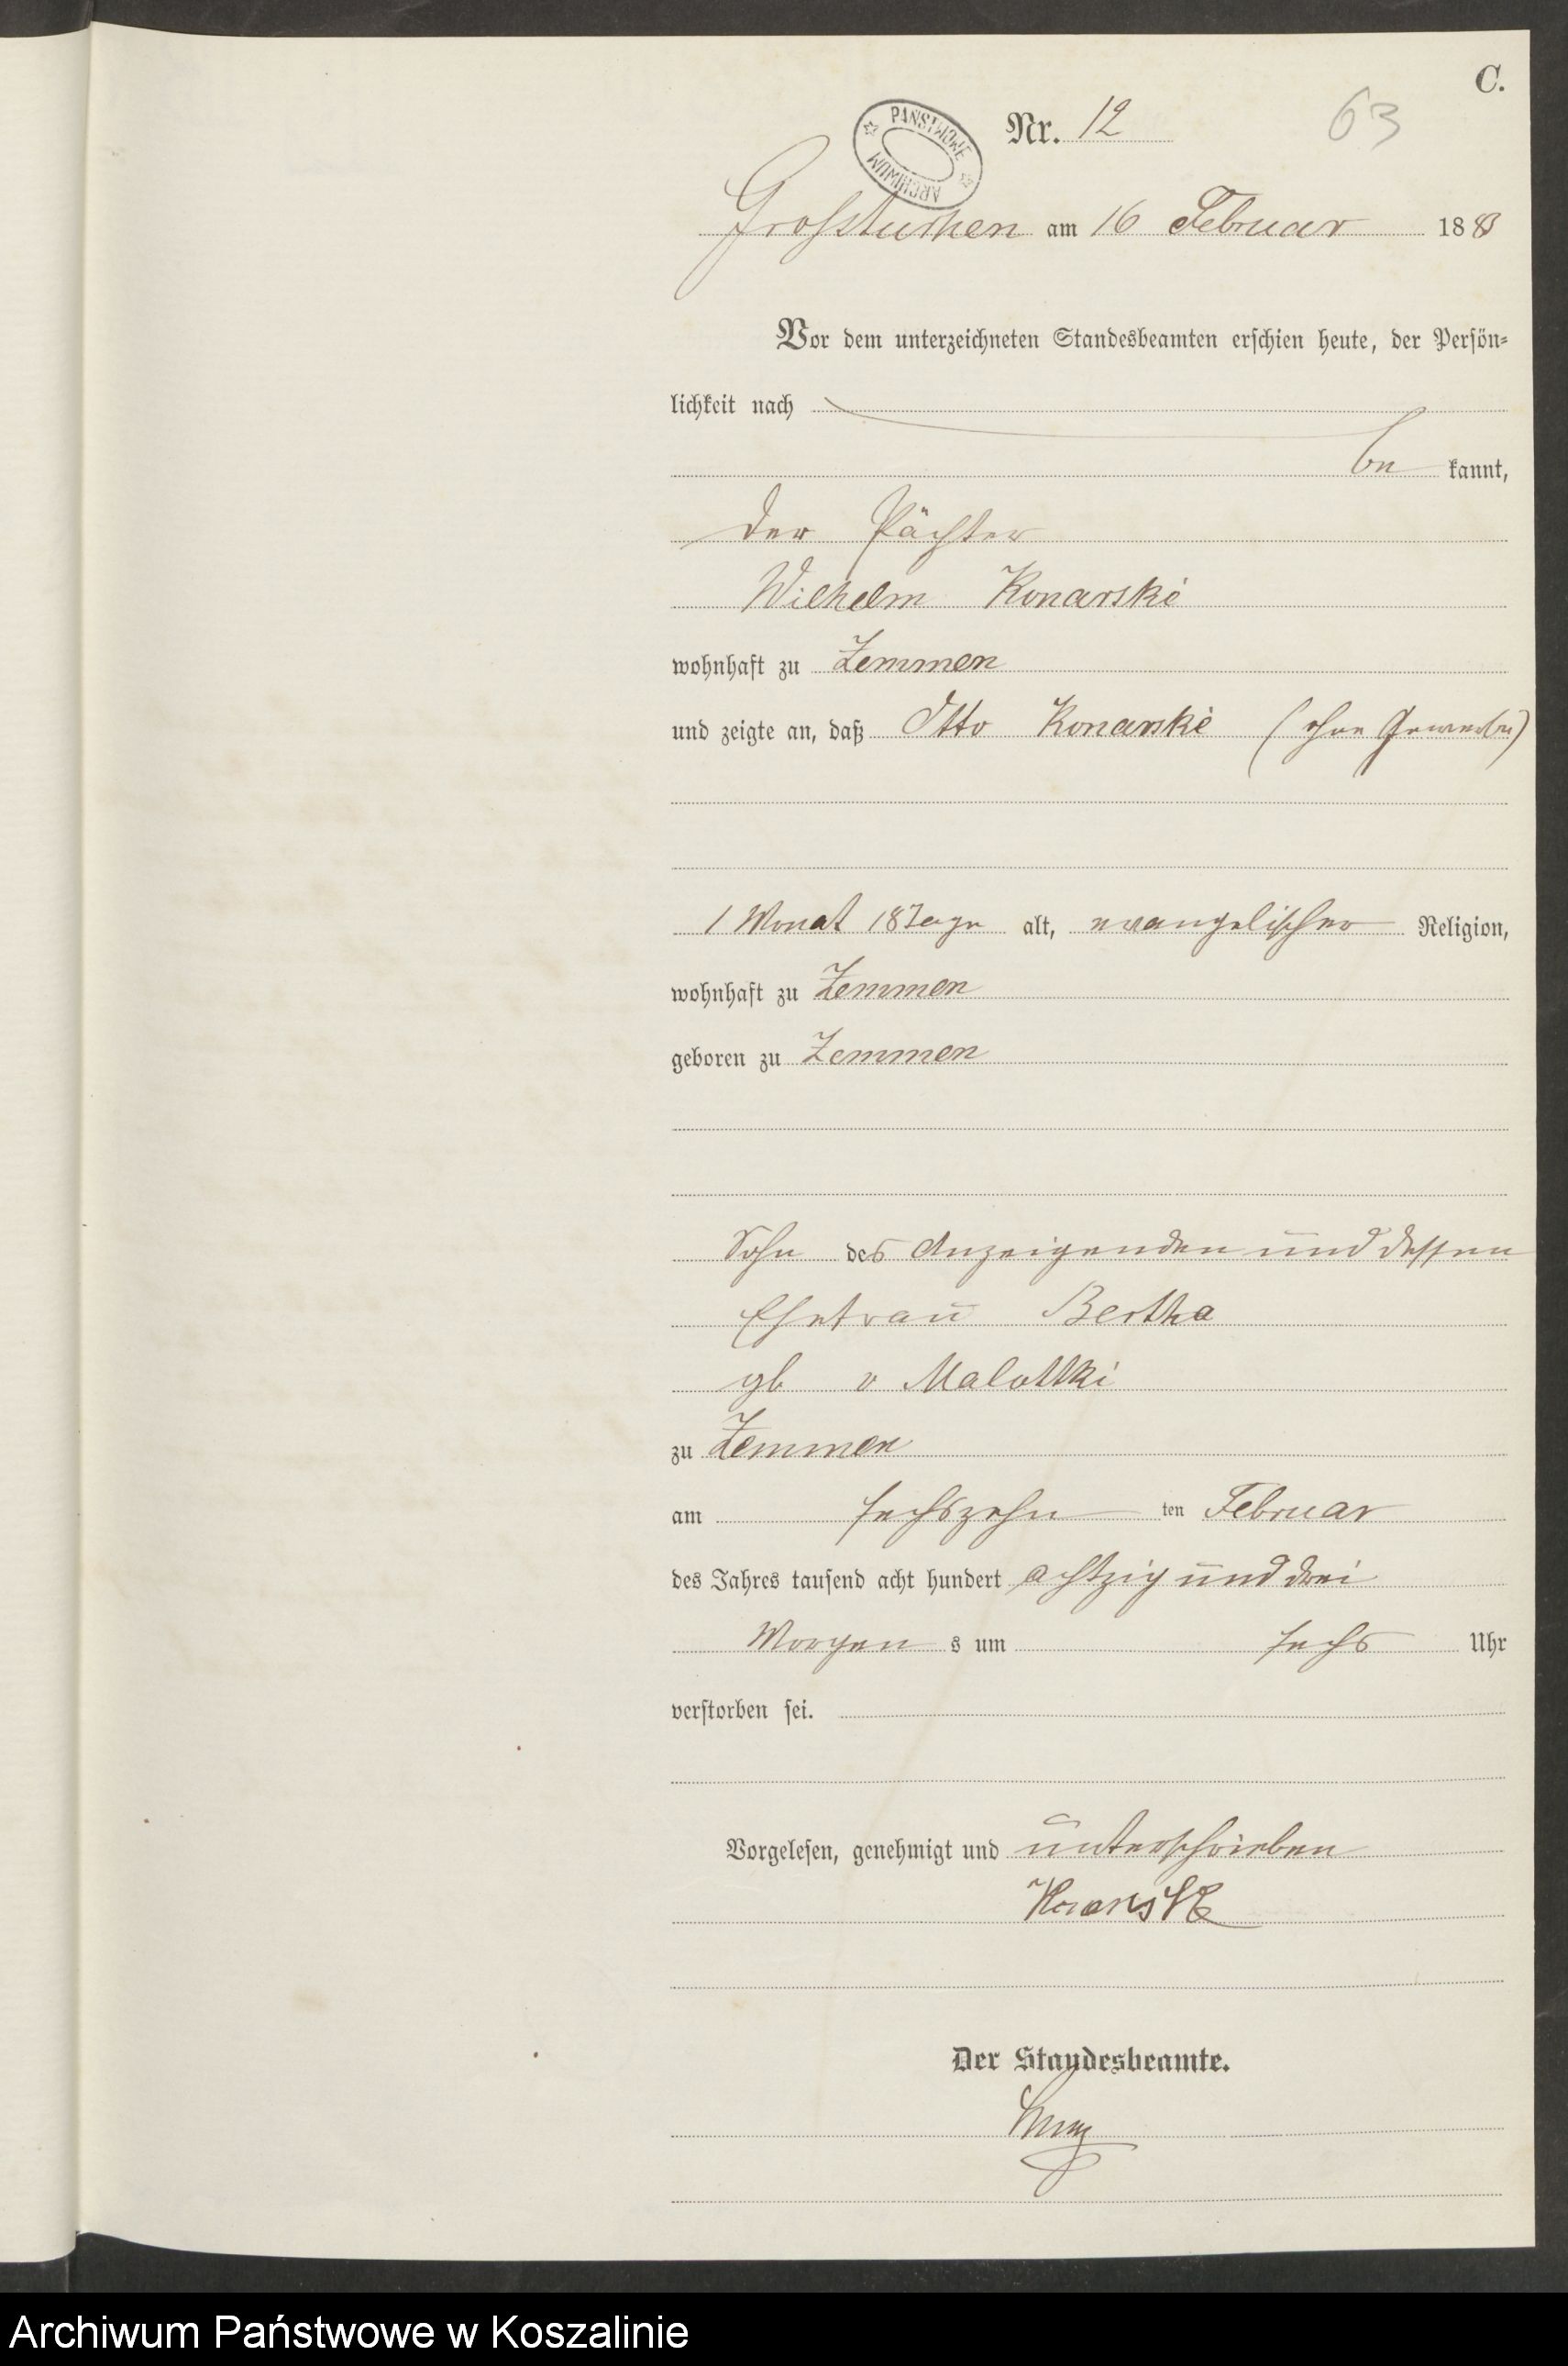 C.
PAŃSTWOWE ARCHIWUM
Nr. 12
63
Grosstuchen am 16 Februar 1883
Vor dem unterzeichneten Standesbeamten erschien heute, der Persön-
lichkeit nach
be kannt,
der Pächter
Wilhelm Konarski
wohnhaft zu Zemmen
und zeigte an, daß Otto Konarski (ohne Gewerbe)
1 Monat 18 Tage alt, evangelischer Religion,
wohnhaft zu Zemmen
geboren zu Zemmen
Sohn des Anzeigenden und dessen
Ehefrau Bertha
gb v Malottki
zu Zemmen
am sechszehn ten Februar
des Jahres tausend acht hundert achtzig und drei
Morgen s um sechs Uhr
verstorben sei.
Vorgelesen, genehmigt und unterschrieben
Der Standesbeamte.
Archiwum Państwowe w Koszalinie